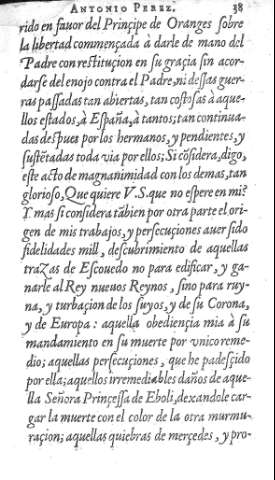 ANTONIO PEREZ. 38
rido en fauor del Prinçipe de Oranges sobre
la libertad commençada à darle de mano del
Padre con restituçion en su graçia sin acor-
darse del enojo contra el Padre, ni dessas guer-
ras passadas tan abiertas, tan costosas à aque-
llos estados, à España, à tantos; tan continua-
das despues por los hermanos, y pendientes, y
sustẽtadas toda via por ellos; Si cõsidera, digo,
este acto de magnanimidad con los demas, tan
glorioso, Que quiere V.S. que no espere en mi?
Y mas si considera tãbien por otra parte el ori-
gen de mis trabajos, y persecuçiones auer sido
fidelidades mill, descubrimiento de aquellas
traZas de Escouedo no para edificar, y ga-
narle al Rey nueuos Reynos, sino para ruy-
na, y turbaçion de los suyos, y de su Corona,
y de Europa: aquella obediençia mia à su
mandamiento en su muerte por vnico reme-
dio; aquellas persecuçiones, que he padesçido
por ella; aquellos irremediables daños de aque-
lla Señora Prinçessa de Eboli, dexandole car-
gar la muerte con el color de la otra murmu-
raçion; aquellas quiebras de merçedes, y pro-